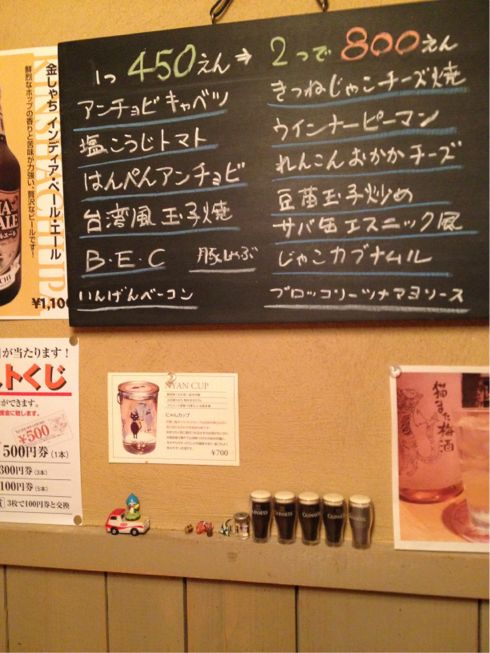 1つ 450えん ⇒ 2つで 800えん
アンチョビキャベツ
塩こうじトマト
はんぺんアンチョビ
台湾風玉子焼
B・E・C 豚しゃぶ
いんげんベーコン
きつねじゃこチーズ焼
ウインナーピーマン
れんこんおかかチーズ
豆苗玉子炒め
サバ缶エスニック風
じゃこカブナムル
ブロッコリーツナマヨソース
金しゃち インディア・ペール・エール
鮮烈なホップの香りと苦味が力強い、贅沢なビールです!
¥1,100
が当たります!
トくじ
ができます。
¥500
500円券(1本)
300円券(3本)
100円券(5本)
3枚で100円券と交換
NYAN CUP
にゃんカップ
¥700
猫また梅酒
GUINNESS
GUINNESS
GUINNESS
GUINNESS